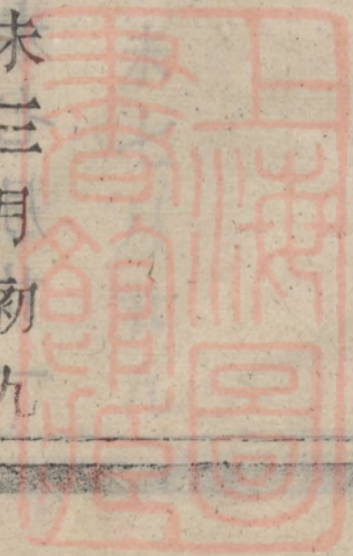 上海圖
書館藏
未三月初九